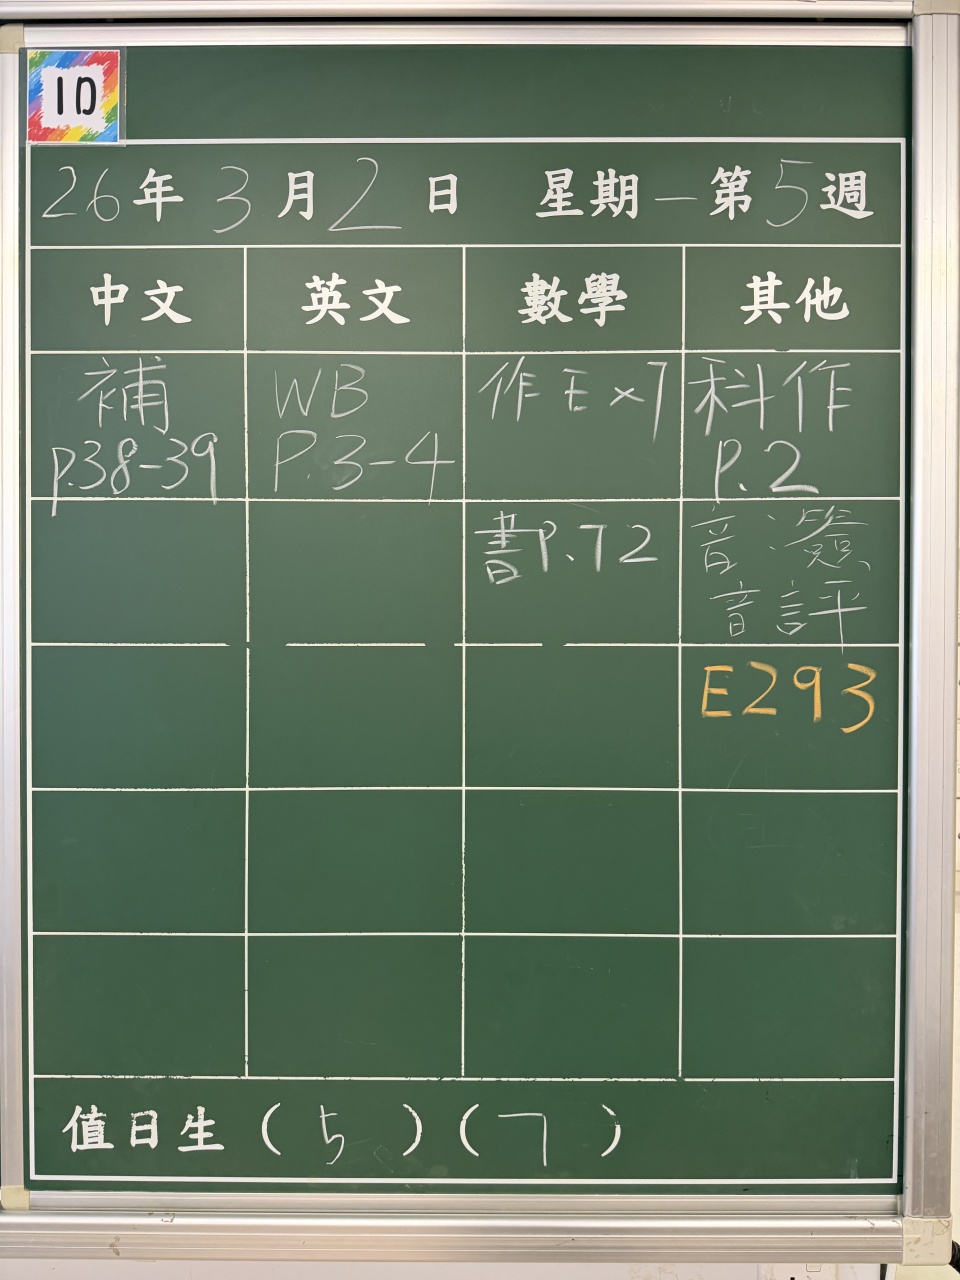 1D
26年3月2日 星期一第5週
中文 英文 數學 其他
補 WB 作E×7 科作
p.38-39 P.3-4 P.2
書P.72 音:簽
音評
E293
值日生(5)(7)